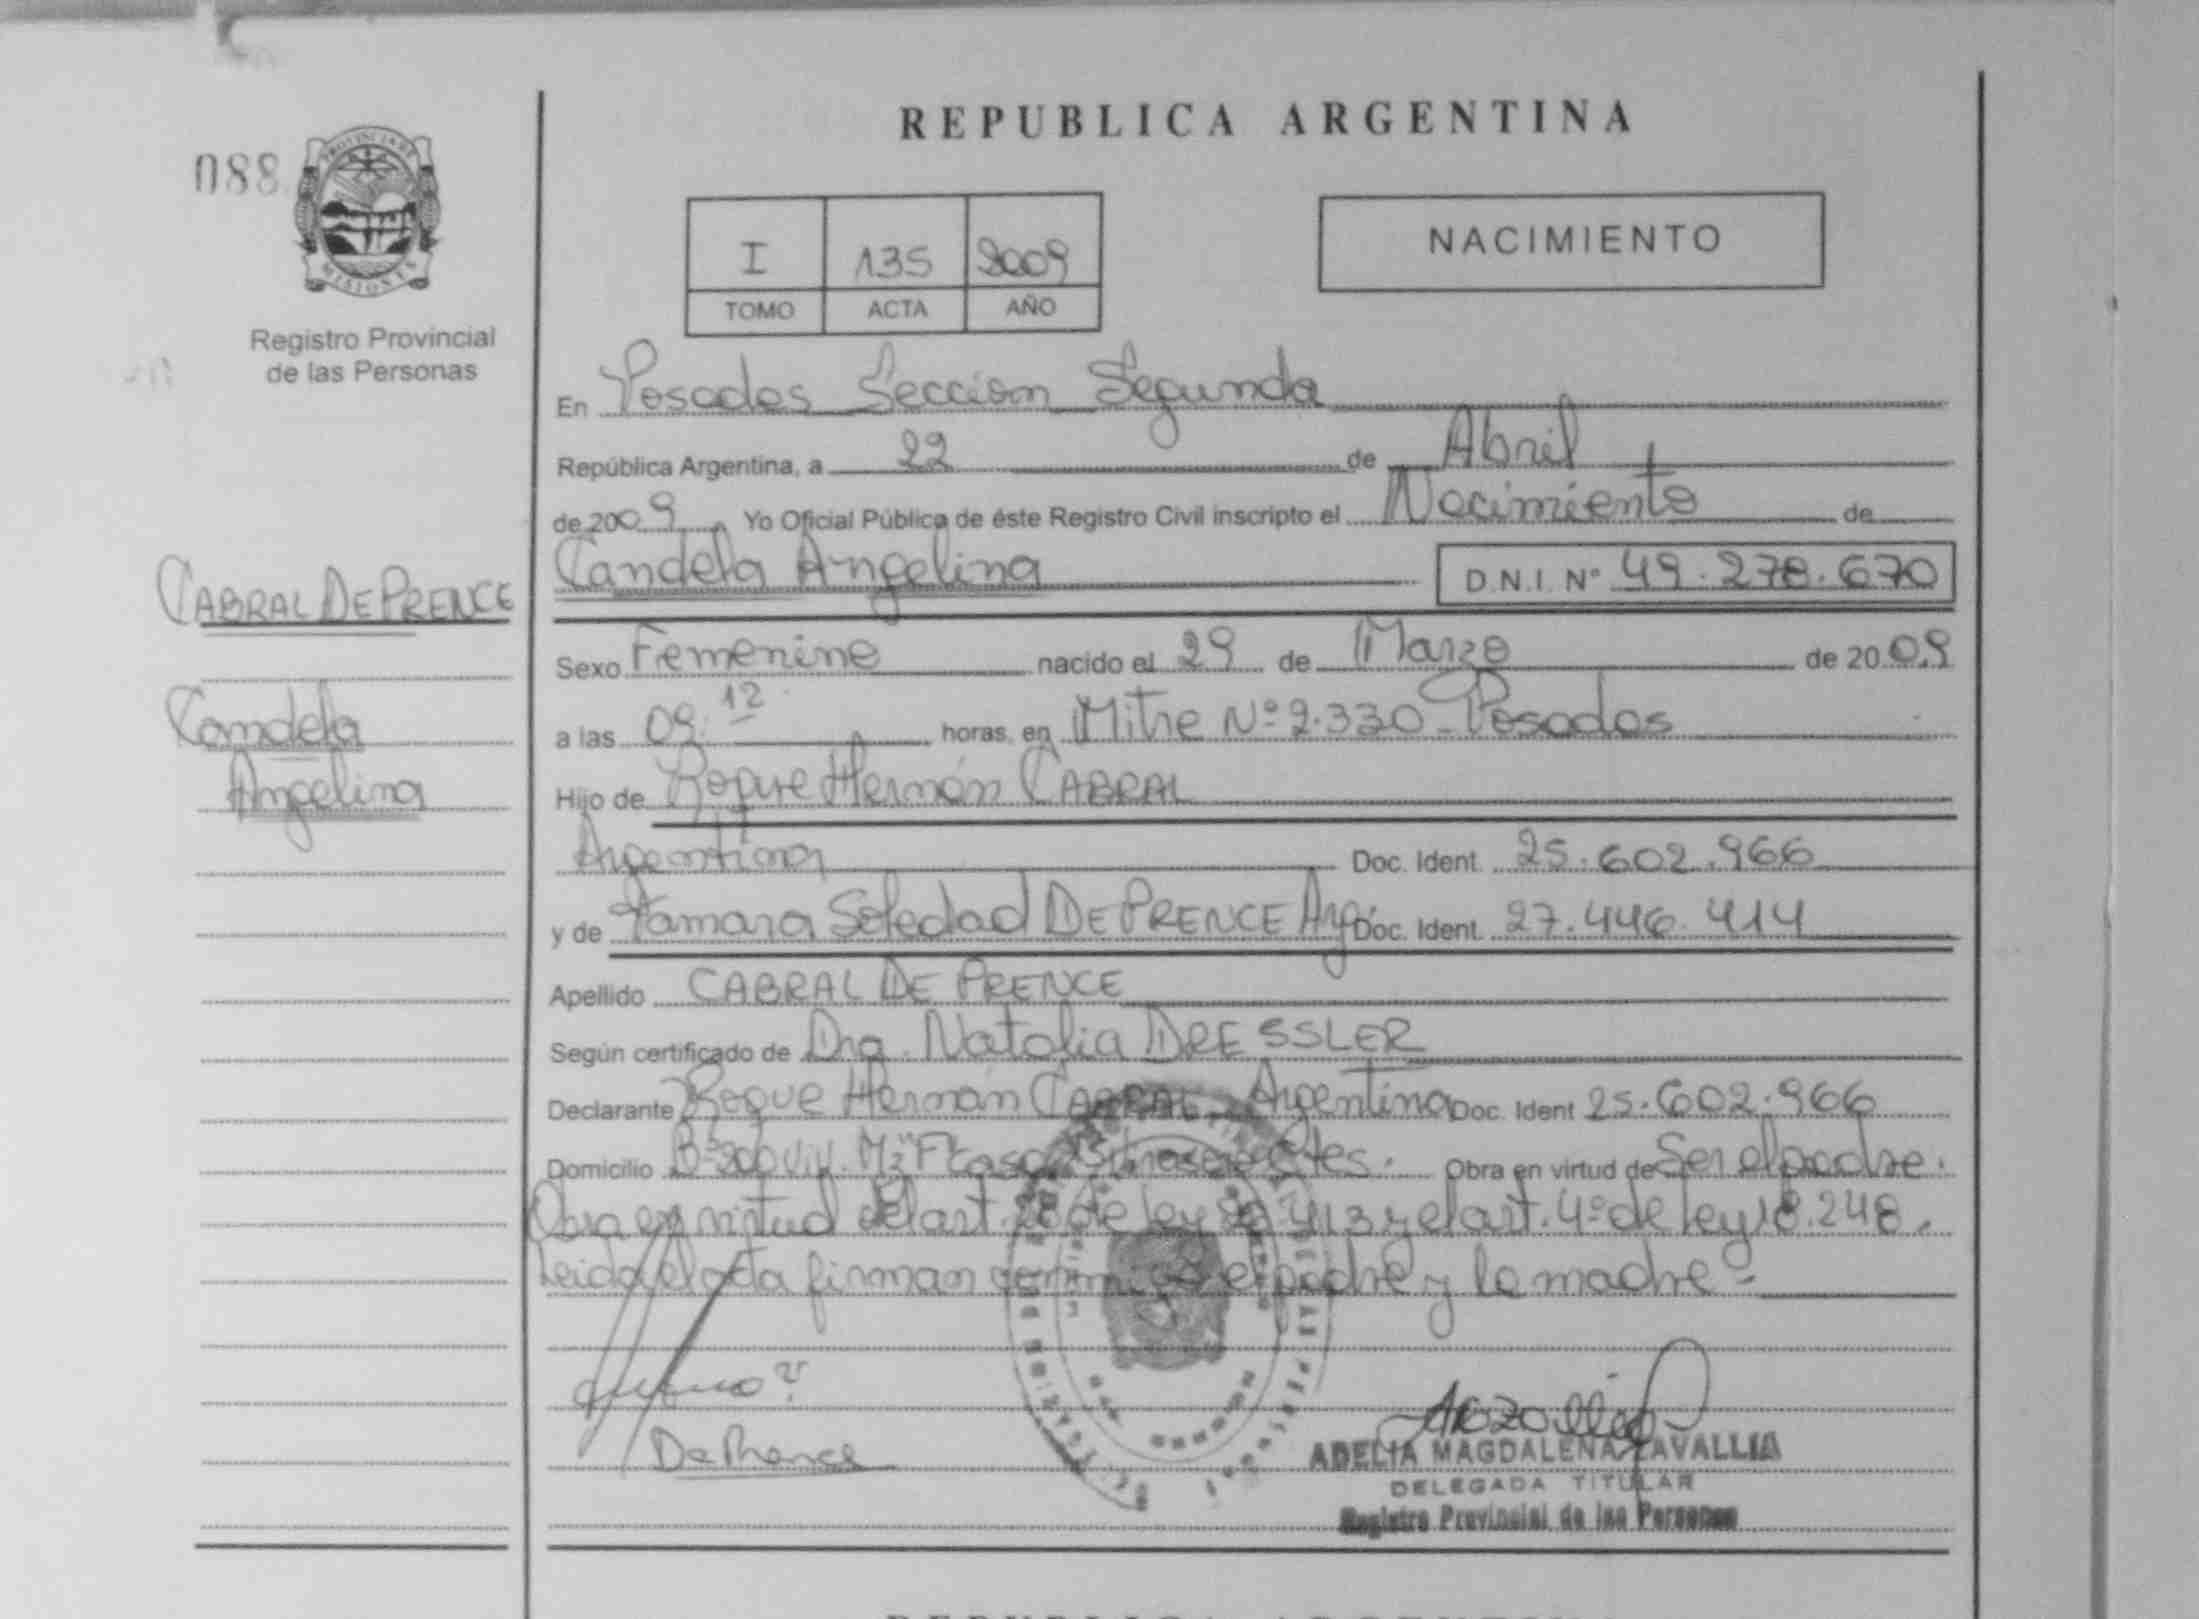 REPUBLICA ARGENTINA
088
PROVINCIA DE
MISIONES
Registro Provincial
de las Personas
I 135 2009
TOMO ACTA AÑO
NACIMIENTO
En Posadas Sección Segunda
República Argentina, a 22 de Abril
de 2009, Yo Oficial Público de éste Registro Civil inscripto el Nacimiento de
Candela Angelina D.N.I. Nº 49.278.670
CABRAL DE PRENCE
Candela
Angelina
Sexo Femenino nacido el 29 de Marzo de 2009
a las 09:12 horas, en Mitre Nº 2.330 - Posadas
Hijo de Roque Hernán CABRAL
Argentina Doc. Ident. 25.602.966
y de Tamara Soledad DE PRENCE Arg. Doc. Ident. 27.446.414
Apellido CABRAL DE PRENCE
Según certificado de Dra. Natalia DRESSLER
Declarante Roque Hernán CABRAL Argentina Doc. Ident 25.602.966
Domicilio Bº 200 Viv. Mz "F" casa Obra en virtud de Ser el padre.
Obra en virtud del art. de ley 413 y el art. 4º de ley 18.248.
Leida el acta firman conmigo el padre y la madre -
De Prence
ADELIA MAGDALENA ZAVALLIA
DELEGADA TITULAR
Registro Provincial de las Personas